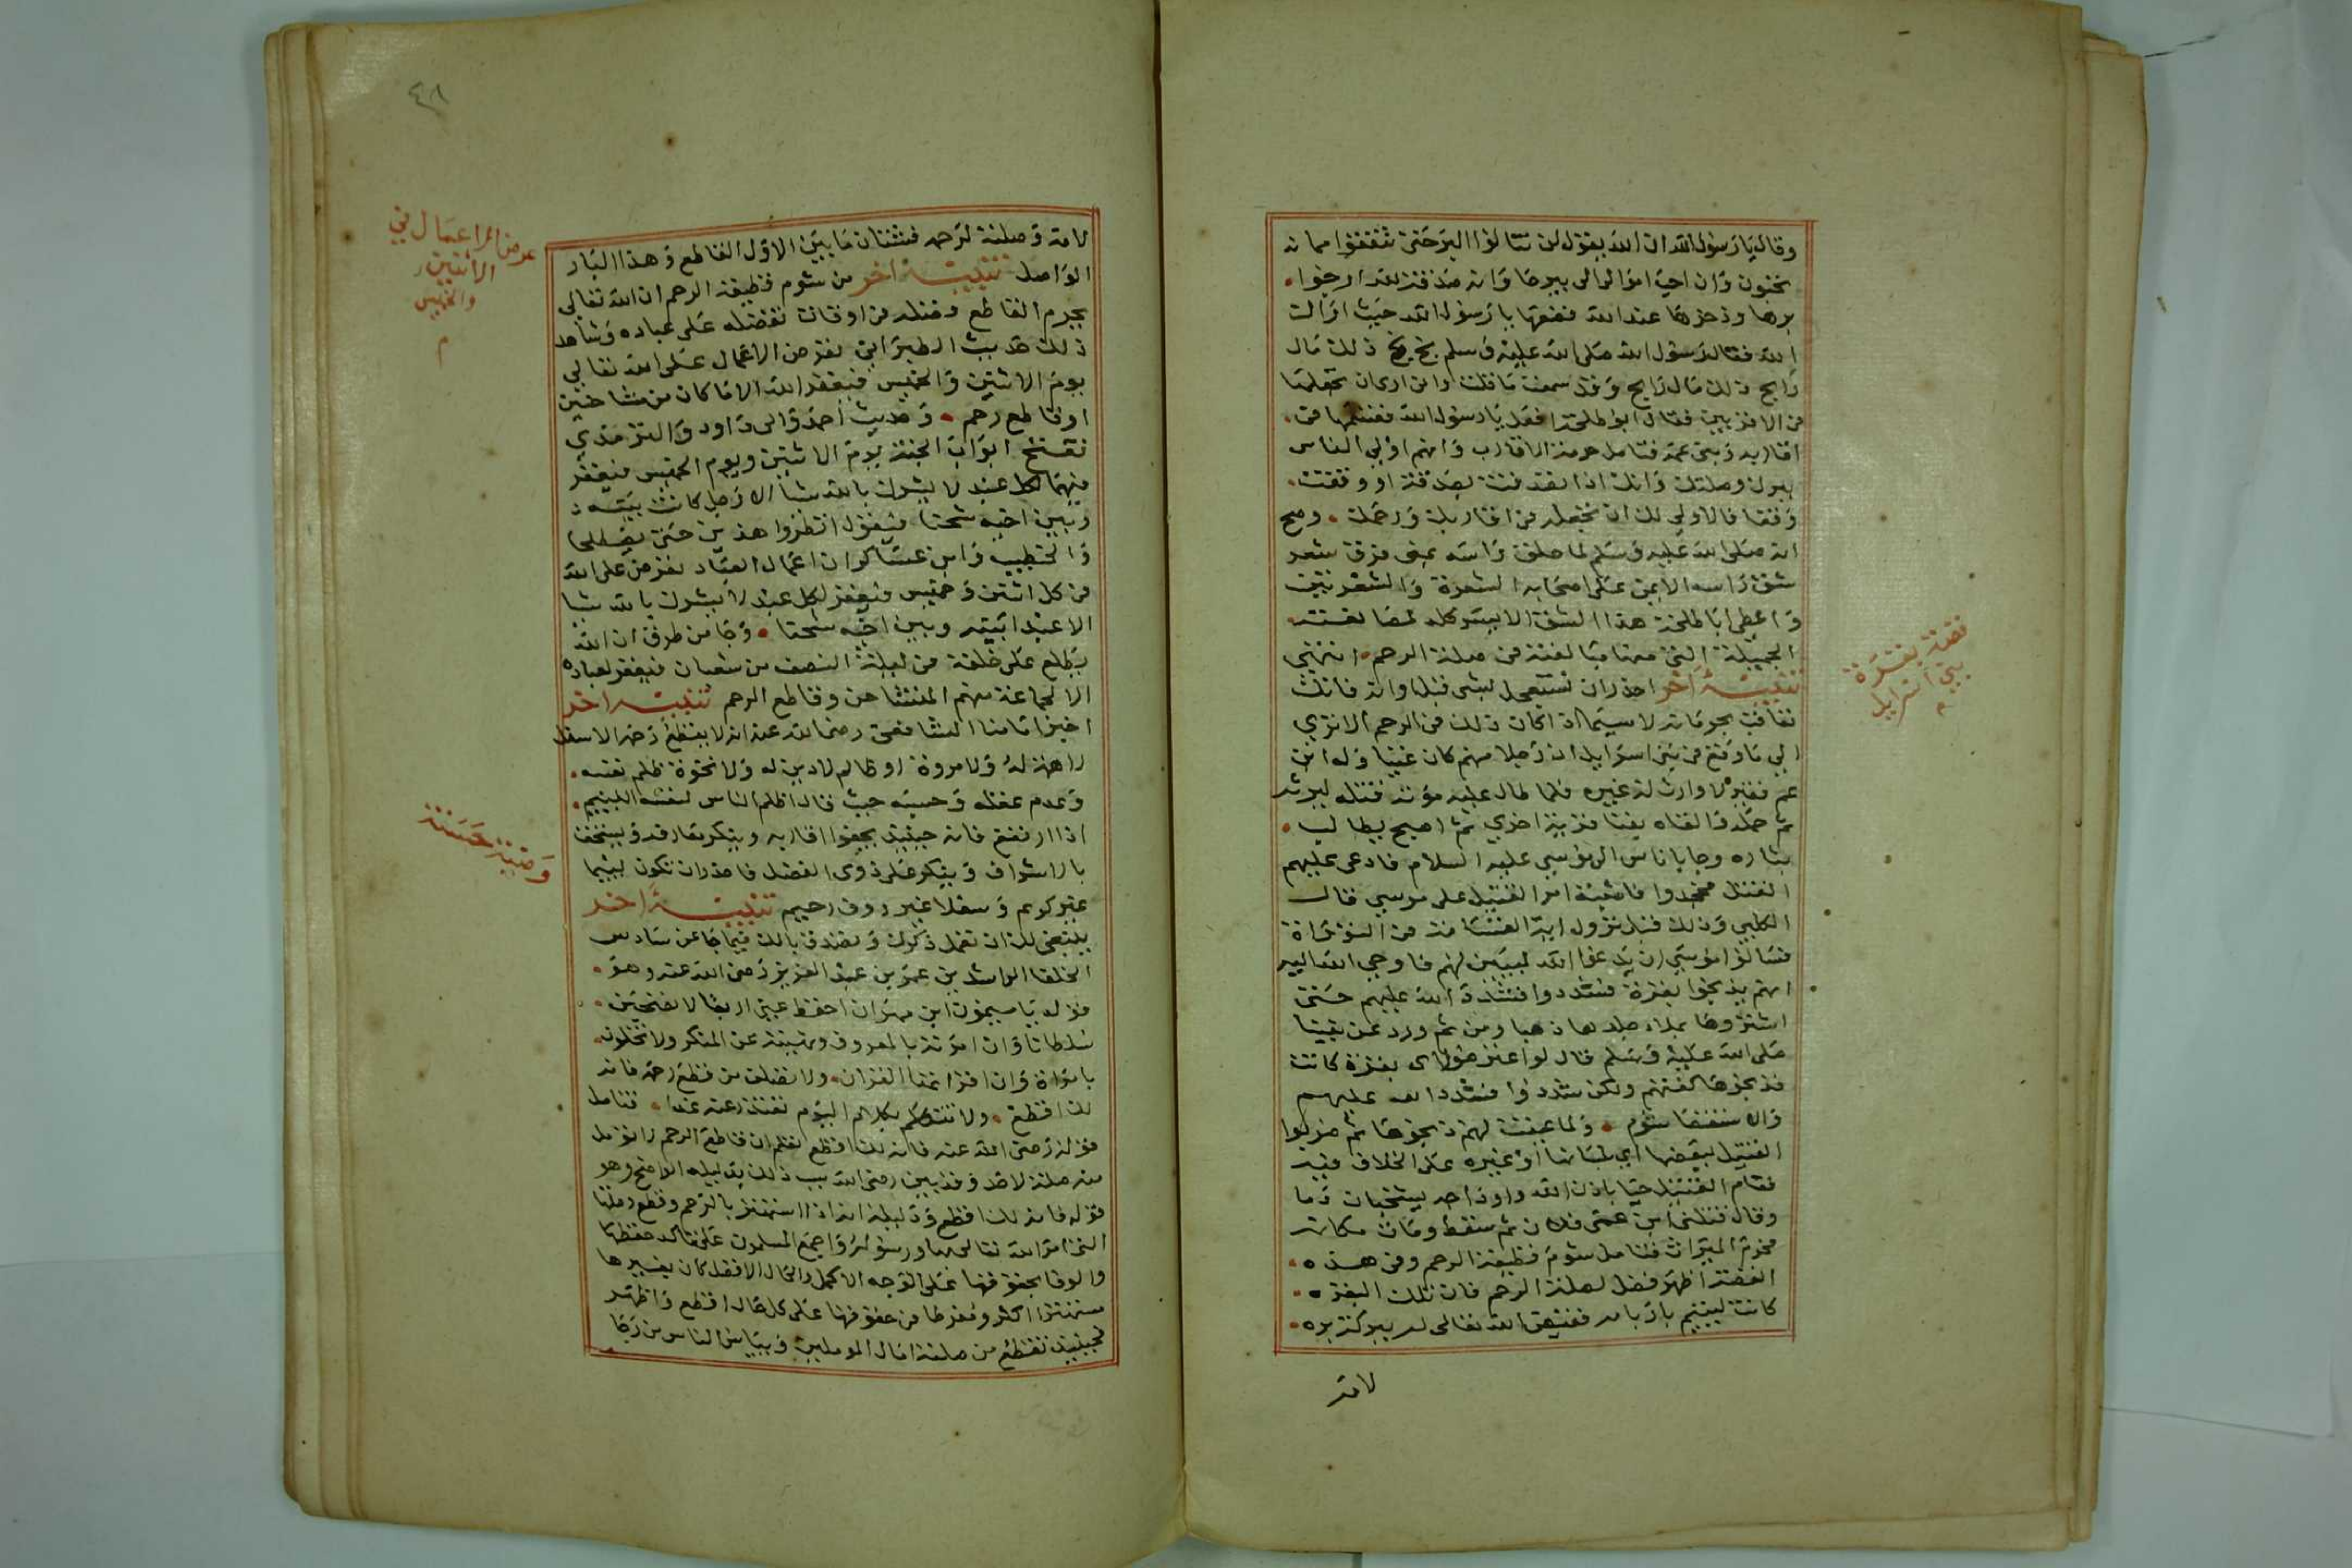 وقال يا رسول الله ان الله يقول لن تنالوا البر حتى تنفقوا مما
تحبون وان احب اموالي الي بيرحا وانه صدقة لله ارجوا
برها وذخرها عند الله فضعها يا رسول الله حيث اراك
الله فقال رسول الله صلى الله عليه وسلم بخ بخ ذلك مال
رابح ذلك مال رابح وقد سمعت ما قلت واني ارى ان تجعلها
في الاقربين فقال ابو طلحة افعل يا رسول الله فقسمها في
اقاربه وبني عمه فتامل حرمة الاقارب وانهم اولي الناس
ببرك وصلتك وانك اذا تصدقت بصدقة او وقفت
وقفا فالاولى لك ان تجعله في اقاربك ورحمك وصح
انه صلى الله عليه وسلم لما حلق راسه بمنى فرق شعر
شق راسه الايمن على اصحابه الشعرة والشعرتين
واعطى ابا طلحة هذا الشق الايسر كله
الجميلة التي منها مبالغته في صلة الرحم انتهى
تنبيه اخر احذر ان تستعجل لشي قبل اوانه فانك
تعاقب بحرمانه لا سيما ان كان ذلك في الرحم الا ترى
الي ما وقع في بني اسرايل ان رجلا منهم كان غنيا وله ابن
عم فقير لا وارث له غيره فلما طال عليه موته قتله ليرثه
ثم حمله والقاه بفنا قرية اخري ثم اصبح يطالب
بثاره وجا باناس الى موسي عليه السلام فادعى عليهم
القتل فجحدوا فاشتبه امر القتيل على موسي قال
الكلبي وذلك قبل نزول اية القسامة في التوراة
فسالوا موسي ان يدعوا الله ليبين لهم فاوحي الله اليه
انهم يذبحوا بقرة فشددوا فشدد الله عليهم حتى
اشتروها بملاء جلدها ذهبا ومن ثم ورد عن نبينا
صلى الله عليه وسلم قال لو اعترضوا اي بقرة كانت
فذبحوها لكفتهم ولكن شددوا فشدد الله عليهم
والاستقصا شوم ولما عينت لهم ذبحوها ثم ضربوا
القتيل ببعضها اي لسانها او غيره على الخلاف فيه
فقام القتيل حيا باذن الله واوداجه يشخبان دما
وقال قتلني ابن عمي فلان ثم سقط ومات مكانه
فحرم الميراث فتامل شوم قطيعة الرحم وفي هذه
القصة اظهر فضل لصلة الرحم فان تلك البقره
كانت ليتيم بار بامه فقيض الله تعالى له ببركة بره
لامه
قصة بقرة
بني اسرايل
٤٨
لامه وصلته لرحمه فشتان ما بين الاول القاطع وهذا البار
الواصل تنبيه اخر من شوم قطيعة الرحم ان الله تعالى
يحرم القاطع فضله في اوقات تفضله على عباده وشاهد
ذلك حديث الطبراني تعرض الاعمال على الله تعالى
يوم الاثنين والخميس فيغفر الله الا ما كان من متشاحنين
او قاطع رحم وحديث احمد وابي داود والترمذي
تفتح ابواب الجنة يوم الاثنين ويوم الخميس فيغفر
فيهما لكل عبد لا يشرك بالله شيا الا رجل كانت بينه
وبين اخيه شحنا فيقول انظروا هذين حتى يصطلحا
والخطيب وابن عساكر ان اعمال العباد تعرض على الله
في كل اثنين وخميس فيغفر لكل عبد لا يشرك بالله شيا
الا عبدا بينه وبين اخيه شحنا وجا من طرق ان الله
يطلع على خلقه في ليلة النصف من شعبان فيغفر لعباده
الا لجماعة منهم المتشاحن وقاطع الرحم تنبيه اخر
اخبر امامنا الشافعي رضي الله عنه انه لا يقطع رحمه الا سفل
لا همة له ولا مروة او ظالم لا دين له ولا نخوة ظلم نفسه
وعدم عقله وحسه حيث قال اظلم الناس لنفسه اللييم
اذا ارتفع فانه حينيذ يجفوا اقاربه وينكر معارفه ويستخف
بالاشراف ويتكبر على ذوى الفضل فاحذر ان تكون لييما
غير كريم وسفلا غير روف رحيم تنبيه اخر
ينبغي لك ان تعمل فكرك وتصدق بالك فيما جا عن سادس
الخلفا الراشدين عمر بن عبد العزيز رضي الله عنه وهو
قوله يا ميمون ابن مهران احفظ عني اربعا لا تصحبن
سلطانا وان امرته بالمعروف ونهيته عن المنكر ولا تخلون
بامراة وان اقراتها القران ولا تصلن من قطع رحمه فانه
لك اقطع ولا تتكلم بكلام اليوم تعتذر عنه غدا فتامل
قوله رضي الله عنه فانه لك اقطع تعلم ان قاطع الرحم لا تومل
منه صلة لاحد وقد بين رضي الله سبب ذلك بدليله الواضح وهو
قوله فانه لك اقطع ودليله انه اذا استهتر بالرحم وقطع وصلتها
التي امر الله تعالى بها ورسوله واجمع المسلمون على تاكد حفظها
والوفا بحقوقها على الوجه الاكمل والحال الافضل كان بغيرها
مستهترا اكثر ومفرطا في حقوقها على كل حال اقطع واظهر
فحينيذ تنقطع من صلته امال الوملين ويياس الناس من رجا
عرض الاعمال في
الاثنين
والخميس
وصية حسنة